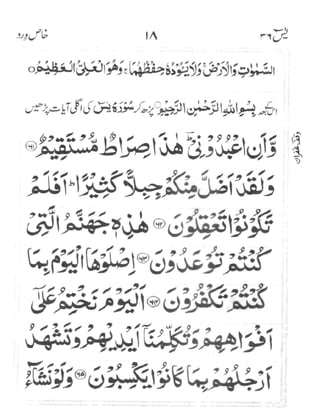 یٰسٓ ۳۶ ۱۸ خاص ورد
السَّمٰوٰتِ وَالْاَرْضَ ۚ وَلَا يَئُوْدُهٗ حِفْظُهُمَا ۚ وَهُوَ الْعَلِيُّ الْعَظِيْمُ ○
بِسْمِ اللّٰهِ الرَّحْمٰنِ الرَّحِيْمِ ○ پڑھ کر سُوْرَۃ یٰسٓ کی اگلی آیات پڑھیں
وقف غفران
وَّاَنِ اعْبُدُوْنِيْ ؔ هٰذَا صِرَاطٌ مُّسْتَقِيْمٌ ﴿۶۱﴾
وَلَقَدْ اَضَلَّ مِنْكُمْ جِبِلًّا كَثِيْرًا ؕ اَفَلَمْ
تَكُوْنُوْا تَعْقِلُوْنَ ﴿۶۲﴾ هٰذِهٖ جَهَنَّمُ الَّتِيْ
كُنْتُمْ تُوْعَدُوْنَ ﴿۶۳﴾ اِصْلَوْهَا الْيَوْمَ بِمَا
كُنْتُمْ تَكْفُرُوْنَ ﴿۶۴﴾ اَلْيَوْمَ نَخْتِمُ عَلٰٓى
اَفْوَاهِهِمْ وَتُكَلِّمُنَآ اَيْدِيْهِمْ وَتَشْهَدُ
اَرْجُلُهُمْ بِمَا كَانُوْا يَكْسِبُوْنَ ﴿۶۵﴾ وَلَوْ نَشَآءُ